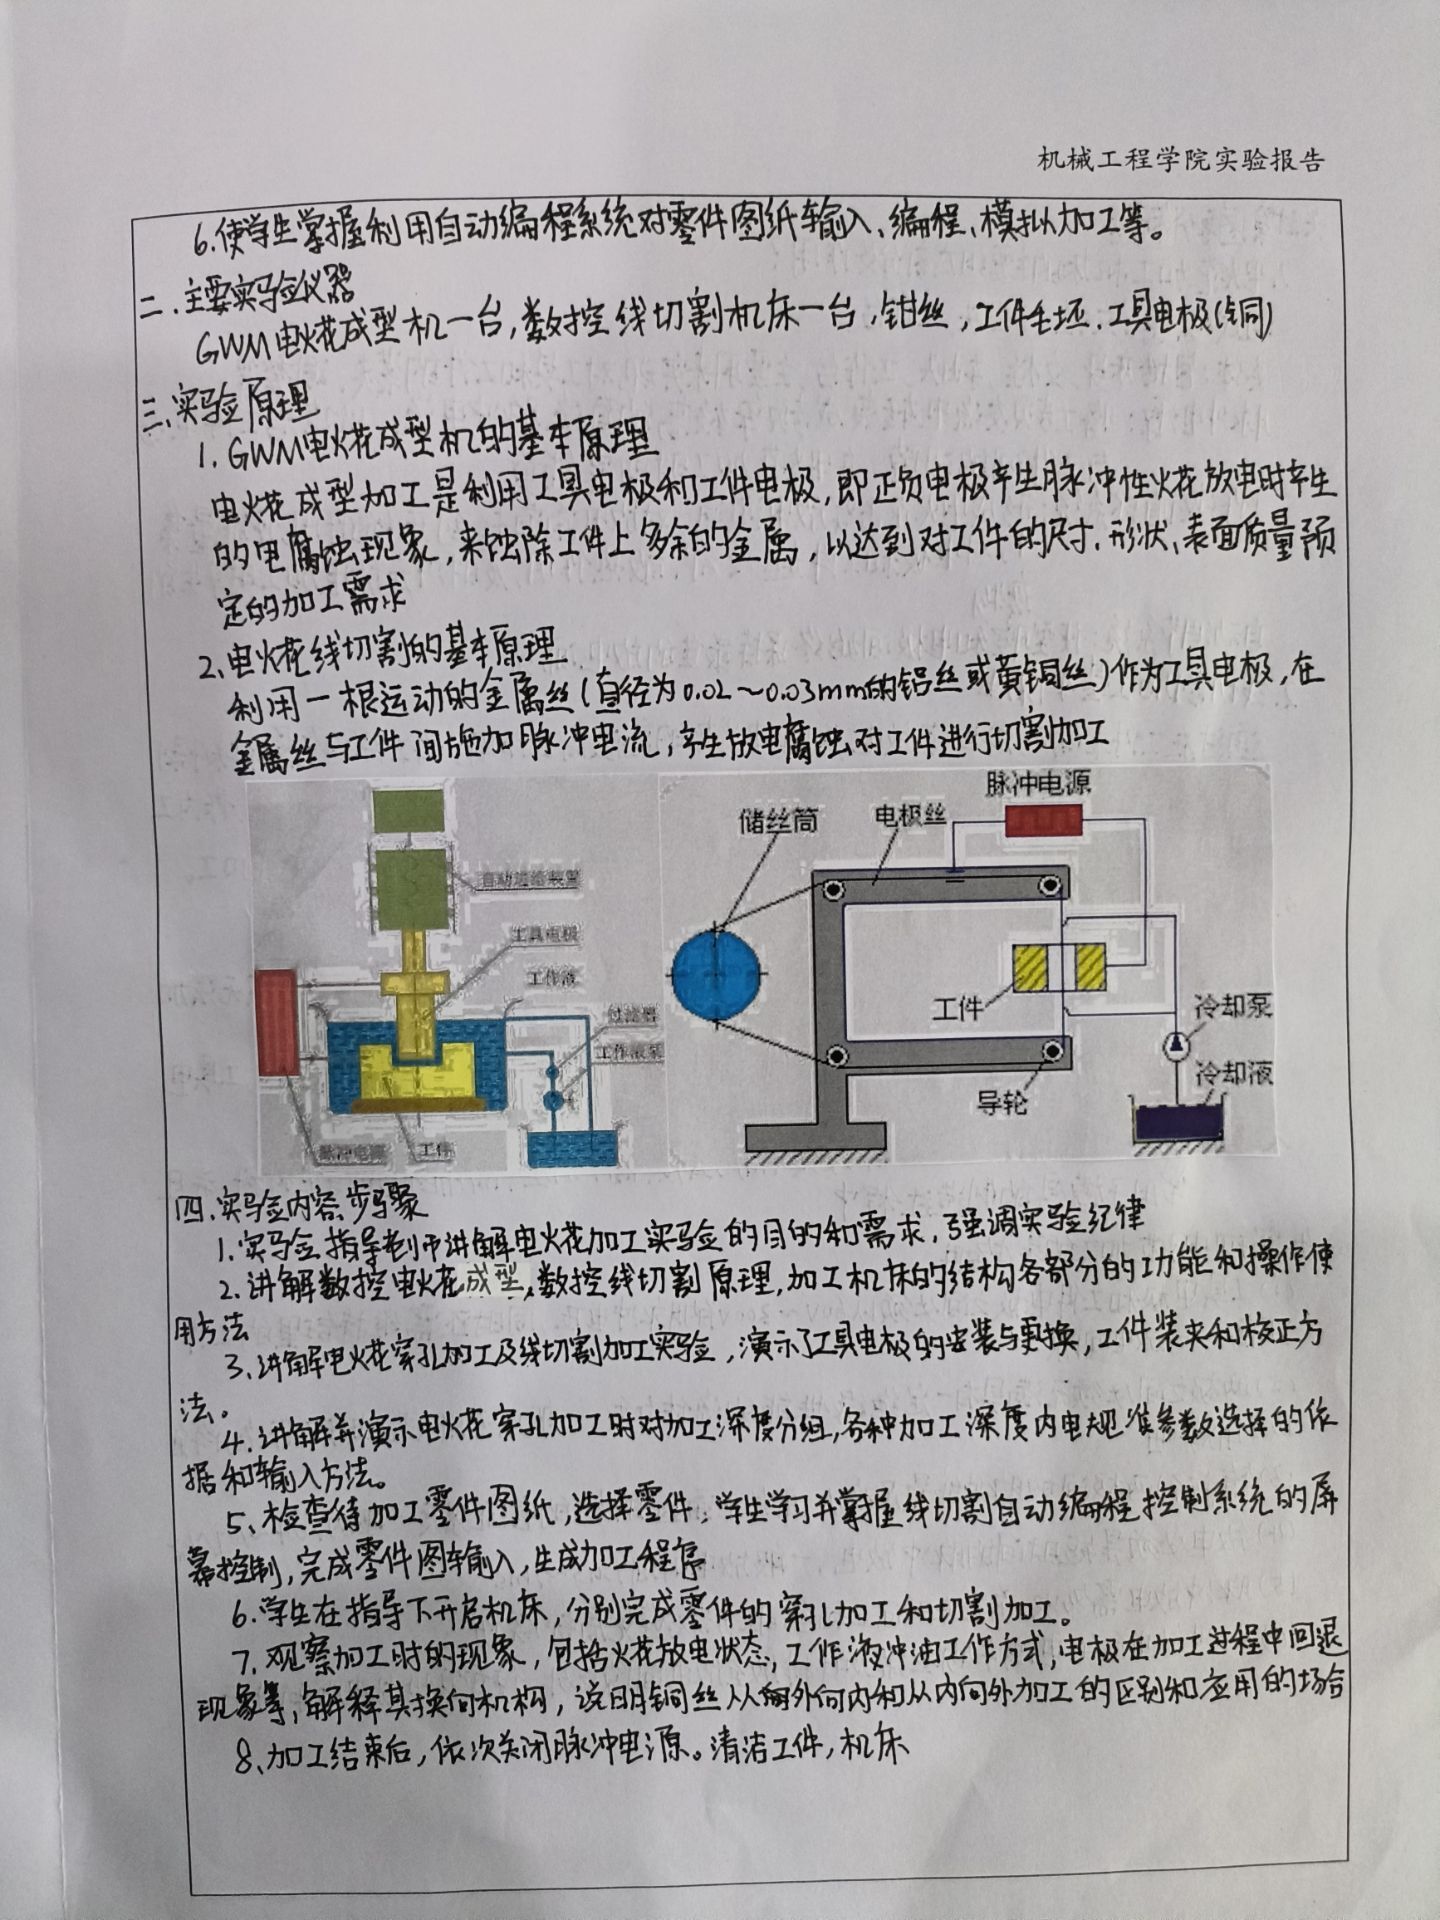 机械工程学院实验报告
6.使学生掌握利用自动编程系统对零件图纸输入、编程、模拟加工等。
二.主要实验仪器
GWM电火花成型机一台,数控线切割机床一台,钳丝,工件毛坯.工具电极(铜)
三.实验原理
1.GWM电火花成型机的基本原理
电火花成型加工是利用工具电极和工件电极,即正负电极产生脉冲性火花放电时产生
的电腐蚀现象,来蚀除工件上多余的金属,以达到对工件的尺寸.形状、表面质量预
定的加工需求
2.电火花线切割的基本原理
利用一根运动的金属丝(直径为0.02~0.03mm的铝丝或黄铜丝)作为工具电极,在
金属丝与工件间施加脉冲电流,产生放电腐蚀对工件进行切割加工
脉冲电源
储丝筒 电极丝
自动进给装置
工具电极
工作液
工件
冷却泵
过滤器
工作液泵
冷却液
导轮
脉冲电源 工件
四.实验内容、步骤
1.实验指导老师讲解电火花加工实验的目的和需求,强调实验纪律
2.讲解数控电火花成型,数控线切割原理,加工机床的结构各部分的功能和操作使
用方法
3.讲解电火花穿孔加工及线切割加工实验,演示了工具电极的安装与更换,工件装夹和校正方
法。
4.讲解并演示电火花穿孔加工时对加工深度分组,各种加工深度内电规准参数选择的依
据和输入方法。
5、检查待加工零件图纸,选择零件,学生学习并掌握线切割自动编程控制系统的屏
幕控制,完成零件图输入,生成加工程序
6.学生在指导下开启机床,分别完成零件的穿孔加工和切割加工。
7,观察加工时的现象,包括火花放电状态,工作液冲油工作方式,电极在加工过程中回退
现象等,解释其换向机构,说明铜丝从外向内和从内向外加工的区别和应用的场合
8、加工结束后,依次关闭脉冲电源。清洁工件,机床